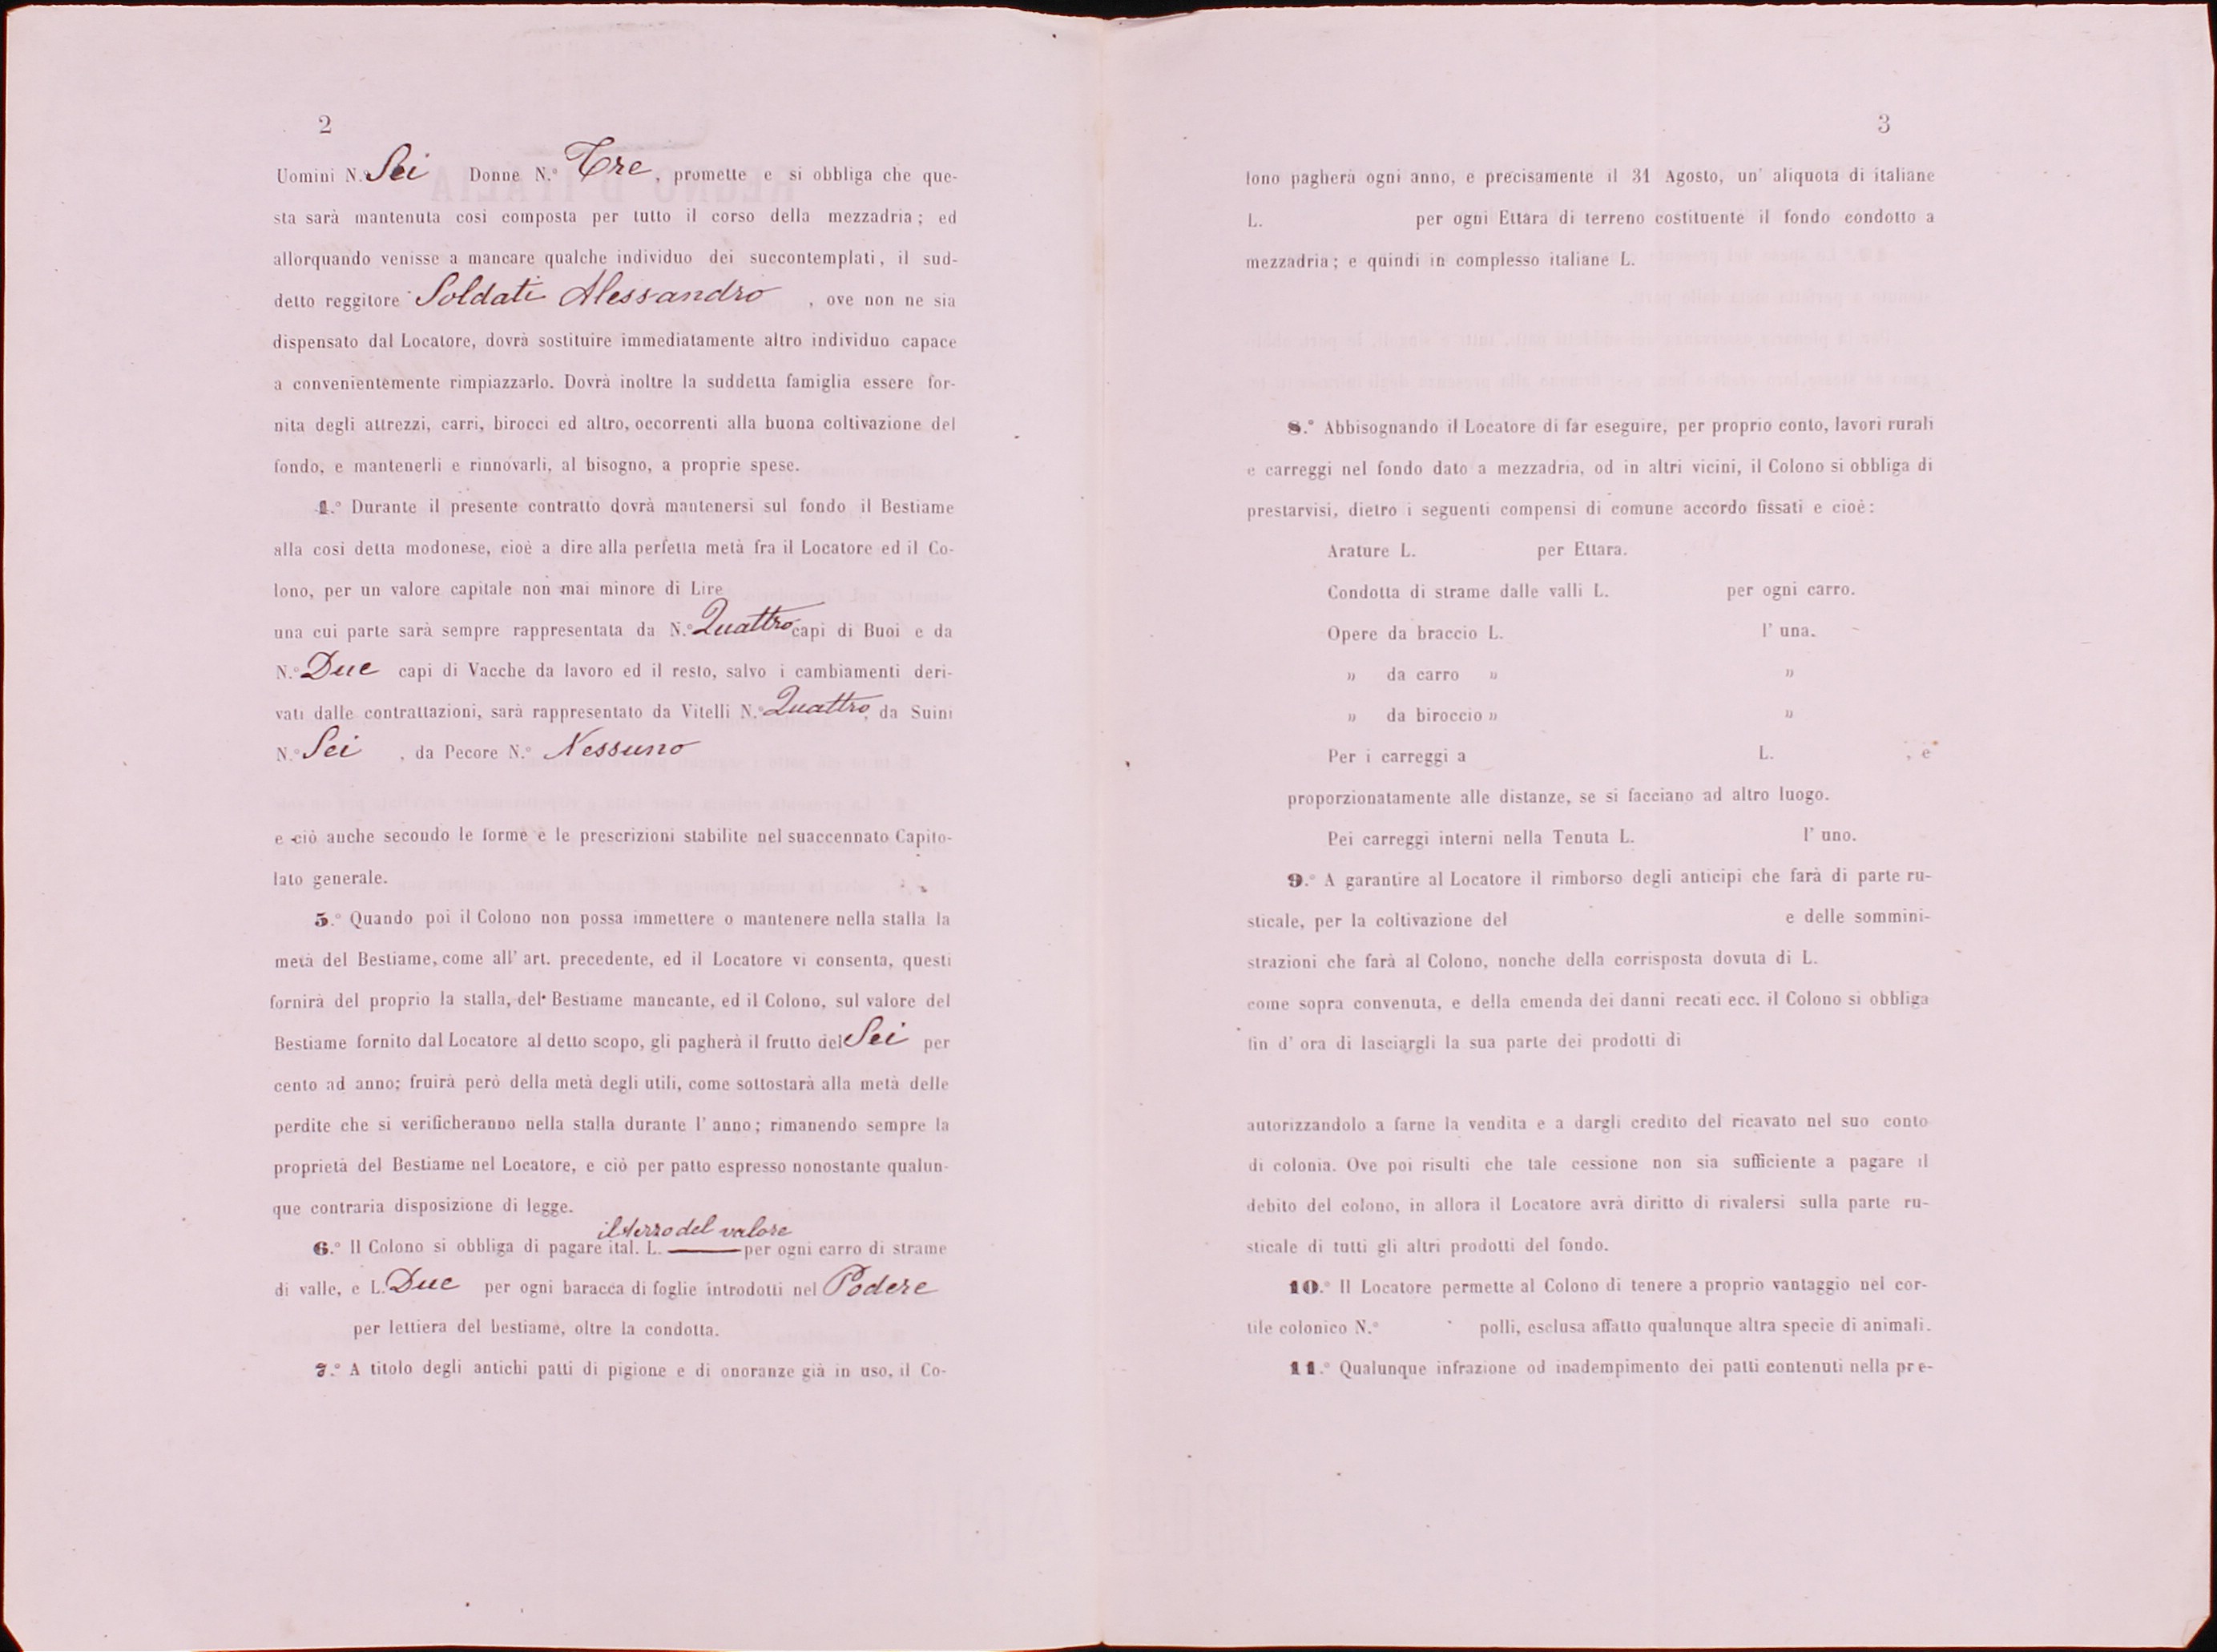 2
Uomini N.° Sei Donne N.° Tre, promette e si obbliga che que-
sta sarà mantenuta così composta per tutto il corso della mezzadria; ed
allorquando venisse a mancare qualche individuo dei succontemplati, il sud-
detto reggitore Soldati Alessandro, ove non ne sia
dispensato dal Locatore, dovrà sostituire immediatamente altro individuo capace
a convenientemente rimpiazzarlo. Dovrà inoltre la suddetta famiglia essere for-
nita degli attrezzi, carri, birocci ed altro, occorrenti alla buona coltivazione del
fondo, e mantenerli e rinnovarli, al bisogno, a proprie spese.
4.° Durante il presente contratto dovrà mantenersi sul fondo il Bestiame
alla così detta modonese, cioè a dire alla perfetta metà fra il Locatore ed il Co-
lono, per un valore capitale non mai minore di Lire
una cui parte sarà sempre rappresentata da N.° Quattro capi di Buoi e da
N.° Due capi di Vacche da lavoro ed il resto, salvo i cambiamenti deri-
vati dalle contrattazioni, sarà rappresentato da Vitelli N.° Quattro, da Suini
N.° Sei , da Pecore N.° Nessuno
e ciò anche secondo le forme e le prescrizioni stabilite nel suaccennato Capito-
lato generale.
5.° Quando poi il Colono non possa immettere o mantenere nella stalla la
metà del Bestiame, come all' art. precedente, ed il Locatore vi consenta, questi
fornirà del proprio la stalla, del Bestiame mancante, ed il Colono, sul valore del
Bestiame fornito dal Locatore al detto scopo, gli pagherà il frutto del Sei per
cento ad anno; fruirà però della metà degli utili, come sottostarà alla metà delle
perdite che si verificheranno nella stalla durante l' anno; rimanendo sempre la
proprietà del Bestiame nel Locatore, e ciò per patto espresso nonostante qualun-
que contraria disposizione di legge.
il terzo del valore
6.° Il Colono si obbliga di pagare ital. L. —— per ogni carro di strame
di valle, e L. Due per ogni baracca di foglie introdotti nel Podere
per lettiera del bestiame, oltre la condotta.
7.° A titolo degli antichi patti di pigione e di onoranze già in uso, il Co-
3
lono pagherà ogni anno, e precisamente il 31 Agosto, un' aliquota di italiane
L. per ogni Ettara di terreno costituente il fondo condotto a
mezzadria; e quindi in complesso italiane L.
8.° Abbisognando il Locatore di far eseguire, per proprio conto, lavori rurali
e carreggi nel fondo dato a mezzadria, od in altri vicini, il Colono si obbliga di
prestarvisi, dietro i seguenti compensi di comune accordo fissati e cioè:
Arature L. per Ettara.
Condotta di strame dalle valli L. per ogni carro.
Opere da braccio L. l' una.
» da carro » »
» da biroccio » »
Per i carreggi a L. , e
proporzionatamente alle distanze, se si facciano ad altro luogo.
Pei carreggi interni nella Tenuta L. l' uno.
9.° A garantire al Locatore il rimborso degli anticipi che farà di parte ru-
sticale, per la coltivazione del e delle sommini-
strazioni che farà al Colono, nonche della corrisposta dovuta di L.
come sopra convenuta, e della emenda dei danni recati ecc. il Colono si obbliga
fin d' ora di lasciargli la sua parte dei prodotti di
autorizzandolo a farne la vendita e a dargli credito del ricavato nel suo conto
di colonia. Ove poi risulti che tale cessione non sia sufficiente a pagare il
debito del colono, in allora il Locatore avrà diritto di rivalersi sulla parte ru-
sticale di tutti gli altri prodotti del fondo.
10.° Il Locatore permette al Colono di tenere a proprio vantaggio nel cor-
tile colonico N.° polli, esclusa affatto qualunque altra specie di animali.
11.° Qualunque infrazione od inadempimento dei patti contenuti nella pre-